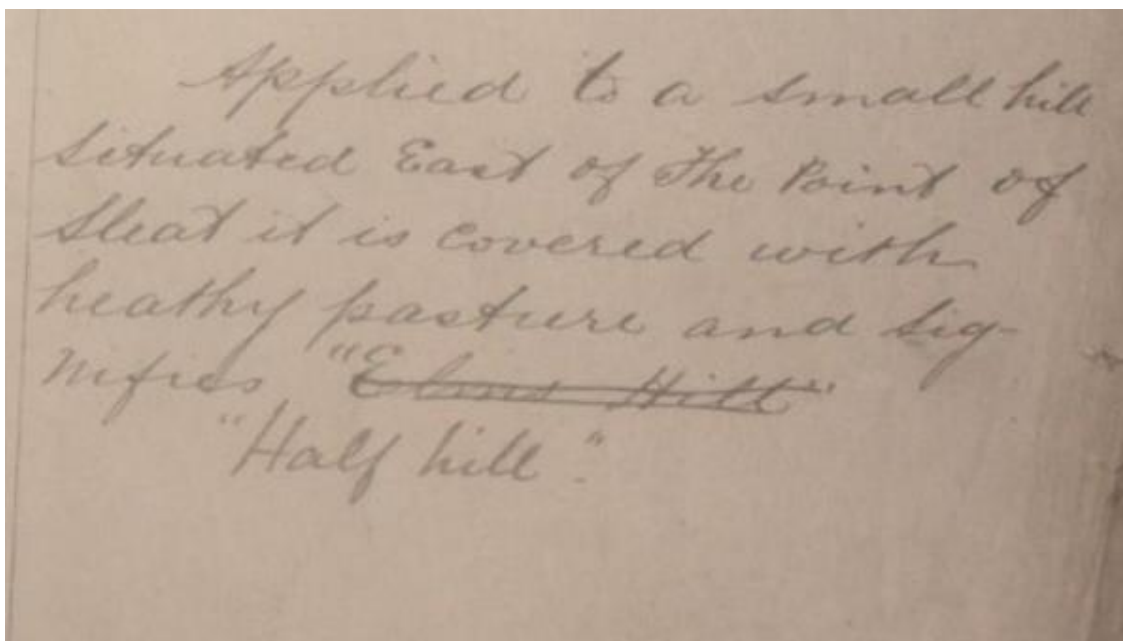 Applied to a small hill
situated East of The Point of
Sleat it is covered with
heathy pasture and sig-
nifies "Elms Hill"
"Half hill".